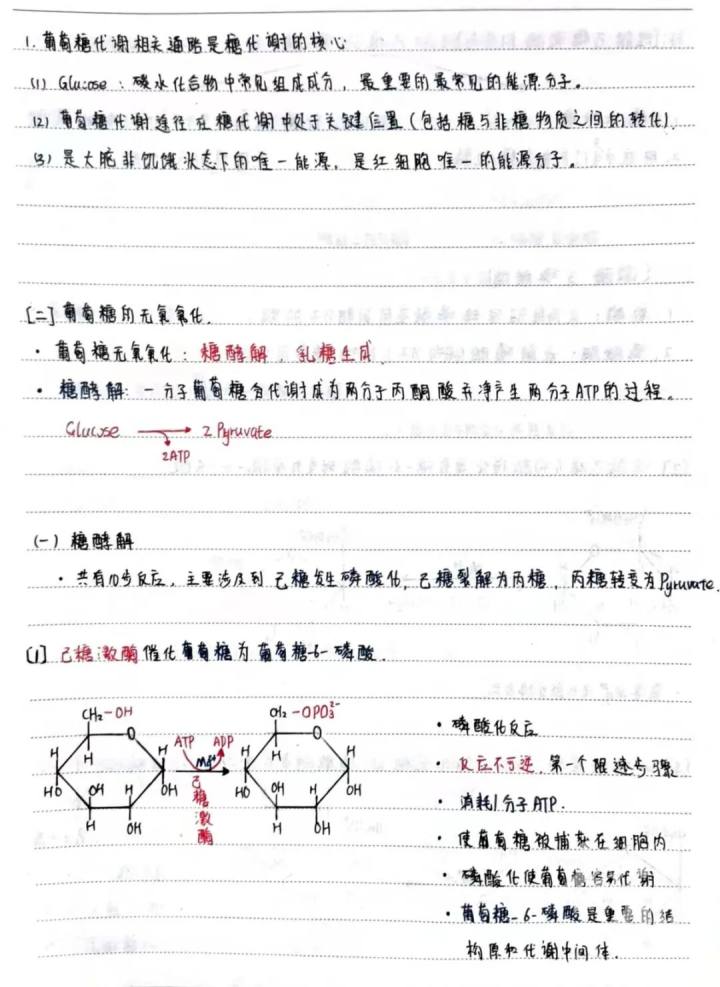 1. 葡萄糖代谢相关通路是糖代谢的核心
(1) Glucose：碳水化合物中常见组成成分，最重要的最常见的能源分子。
(2) 葡萄糖代谢途径在糖代谢中处于关键位置(包括糖与非糖物质之间的转化).
(3) 是大脑非饥饿状态下的唯一能源，是红细胞唯一的能源分子。
[二] 葡萄糖的无氧氧化.
· 葡萄糖无氧氧化：糖酵解，乳糖生成.
· 糖酵解：一分子葡萄糖会代谢成为两分子丙酮酸并净产生两分子ATP的过程。
Glucose → 2 Pyruvate
2ATP
(一) 糖酵解
· 共有10步反应，主要涉及到己糖发生磷酸化，己糖裂解为丙糖，丙糖转变为Pyruvate.
[1] 己糖激酶催化葡萄糖为葡萄糖-6-磷酸.
CH₂-OH
O
H
H
H
HO
OH
H
OH
H
OH
ATP
ADP
Mg²⁺
己糖激酶
CH₂-OPO₃²⁻
O
H
H
HO
OH
H
OH
H
OH
· 磷酸化反应
· 反应不可逆，第一个限速步骤
· 消耗1分子ATP.
· 使葡萄糖被捕获在细胞内
· 磷酸化使葡萄糖容易代谢
· 葡萄糖-6-磷酸是重要的结
构原和代谢中间体.